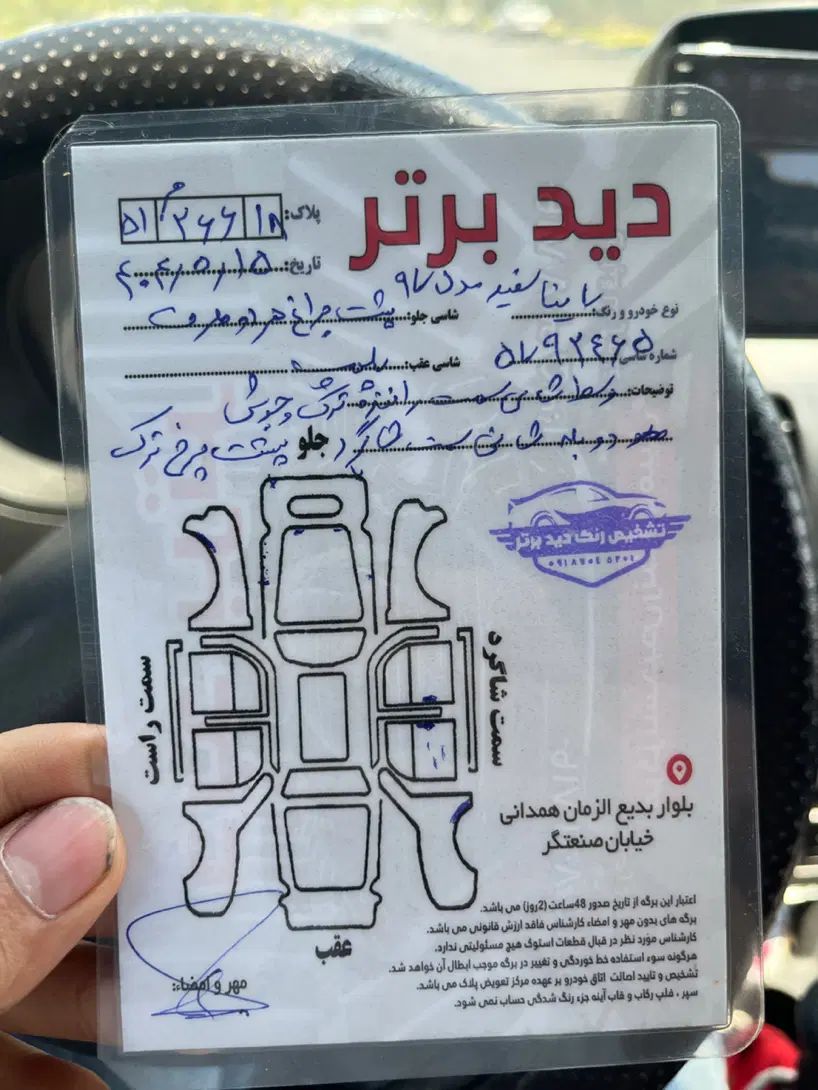 دید برتر
پلاک: ۵۱ م ۳۶۶ ۱۸
تاریخ: ۴۰۴/۵/۱۵
نوع خودرو و رنگ: ساینا سفید مدل ۹۷
شاسی جلو: پشت چراغ هر دو طرف
شماره شاسی: ۵۱۷۹۳۴۶۵
شاسی عقب: سالم
توضیحات: وسط شاسی سمت راننده ترک و جوش
دوباره شاسی سمت شاگرد پشت چرخ ترک
جلو
تشخیص رنگ دید برتر
سمت راست
سمت شاگرد
عقب
بلوار بدیع الزمان همدانی
خیابان صنعتگر
اعتبار این برگه از تاریخ صدور 48ساعت (2روز) می باشد.
برگه های بدون مهر و امضاء کارشناس فاقد ارزش قانونی می باشد.
کارشناس مؤرد نظر در قبال قطعات استوک هیچ مسئولیتی ندارد.
هرگونه سوء استفاده خط خوردگی و تغییر در برگه موجب ابطال آن خواهد شد.
تشخیص و تایید اصالت اتاق خودرو بر عهده مرکز تعویض پلاک می باشد.
سپر ، فلپ رکاب و قاب آینه جزء رنگ شدگی حساب نمی شود.
مهر و امضاء: